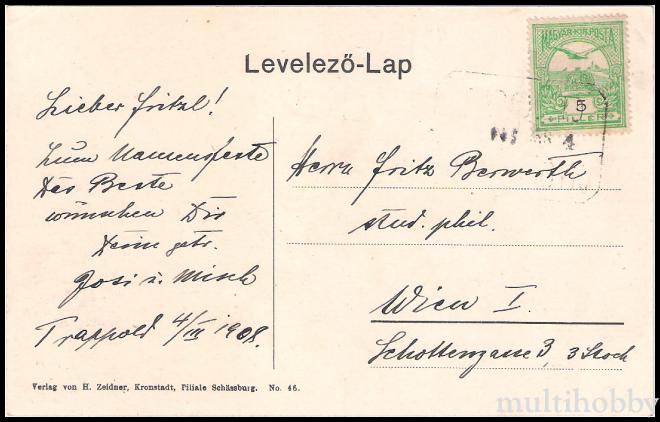 Levelező-Lap
MAGYAR·KIR·POSTA
5
FILLER
Lieber Fritzl!
Zum Namensfeste
das Beste
wünschen Dir
Deine getr.
Josi u. Misch
Trappold 4/III 1908.
Herrn Fritz Berwerth
stud. phil.
Wien I.
Schottengasse 3, 3 Stock
Verlag von H. Zeidner, Kronstadt, Filiale Schässburg. No. 46.
multihobby